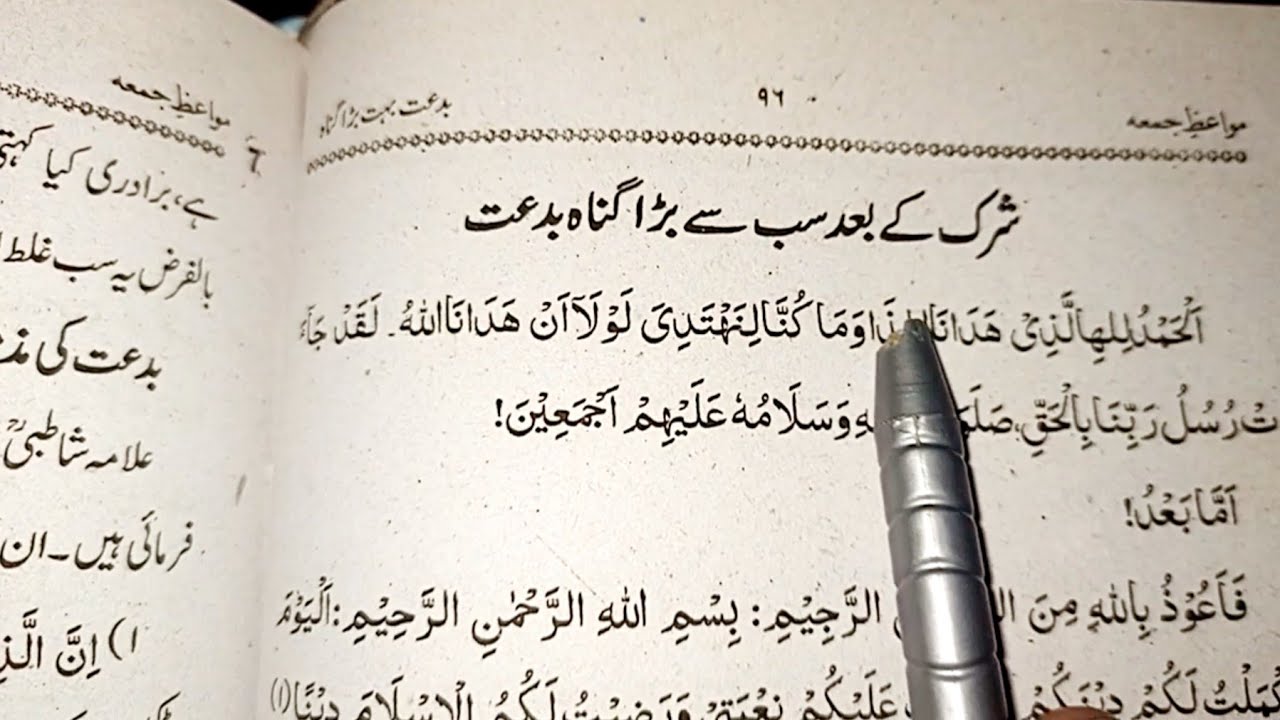 مواعظِ جمعہ ۹۶ بدعت بہت بڑا گناہ
شرک کے بعد سب سے بڑا گناہ بدعت
اَلْحَمْدُ لِلهِ الَّذِیْ هَدَانَا وَمَا كُنَّا لِنَهْتَدِیَ لَوْلَآ اَنْ هَدَانَا اللهُ۔ لَقَدْ جَآءَ
تْ رُسُلُ رَبِّنَا بِالْحَقِّ، وَسَلَامُهٗ عَلَیْهِمْ اَجْمَعِیْنَ!
اَمَّا بَعْدُ!
فَاَعُوْذُ بِاللهِ مِنَ الرَّجِیْمِ: بِسْمِ اللهِ الرَّحْمٰنِ الرَّحِیْمِ: اَلْیَوْمَ
لَكُمْ دِیْنَكُمْ عَلَیْكُمْ نِعْمَتِیْ وَرَضِیْتُ لَكُمُ الْاِسْلَامَ دِیْنًا (۱)
مواعظِ جمعہ
ہے، برادری کیا
بالفرض یہ سب غلط
بدعت کی
علامہ شاطبیؒ
فرمائی ہیں۔ ان
۱) اِنَّ